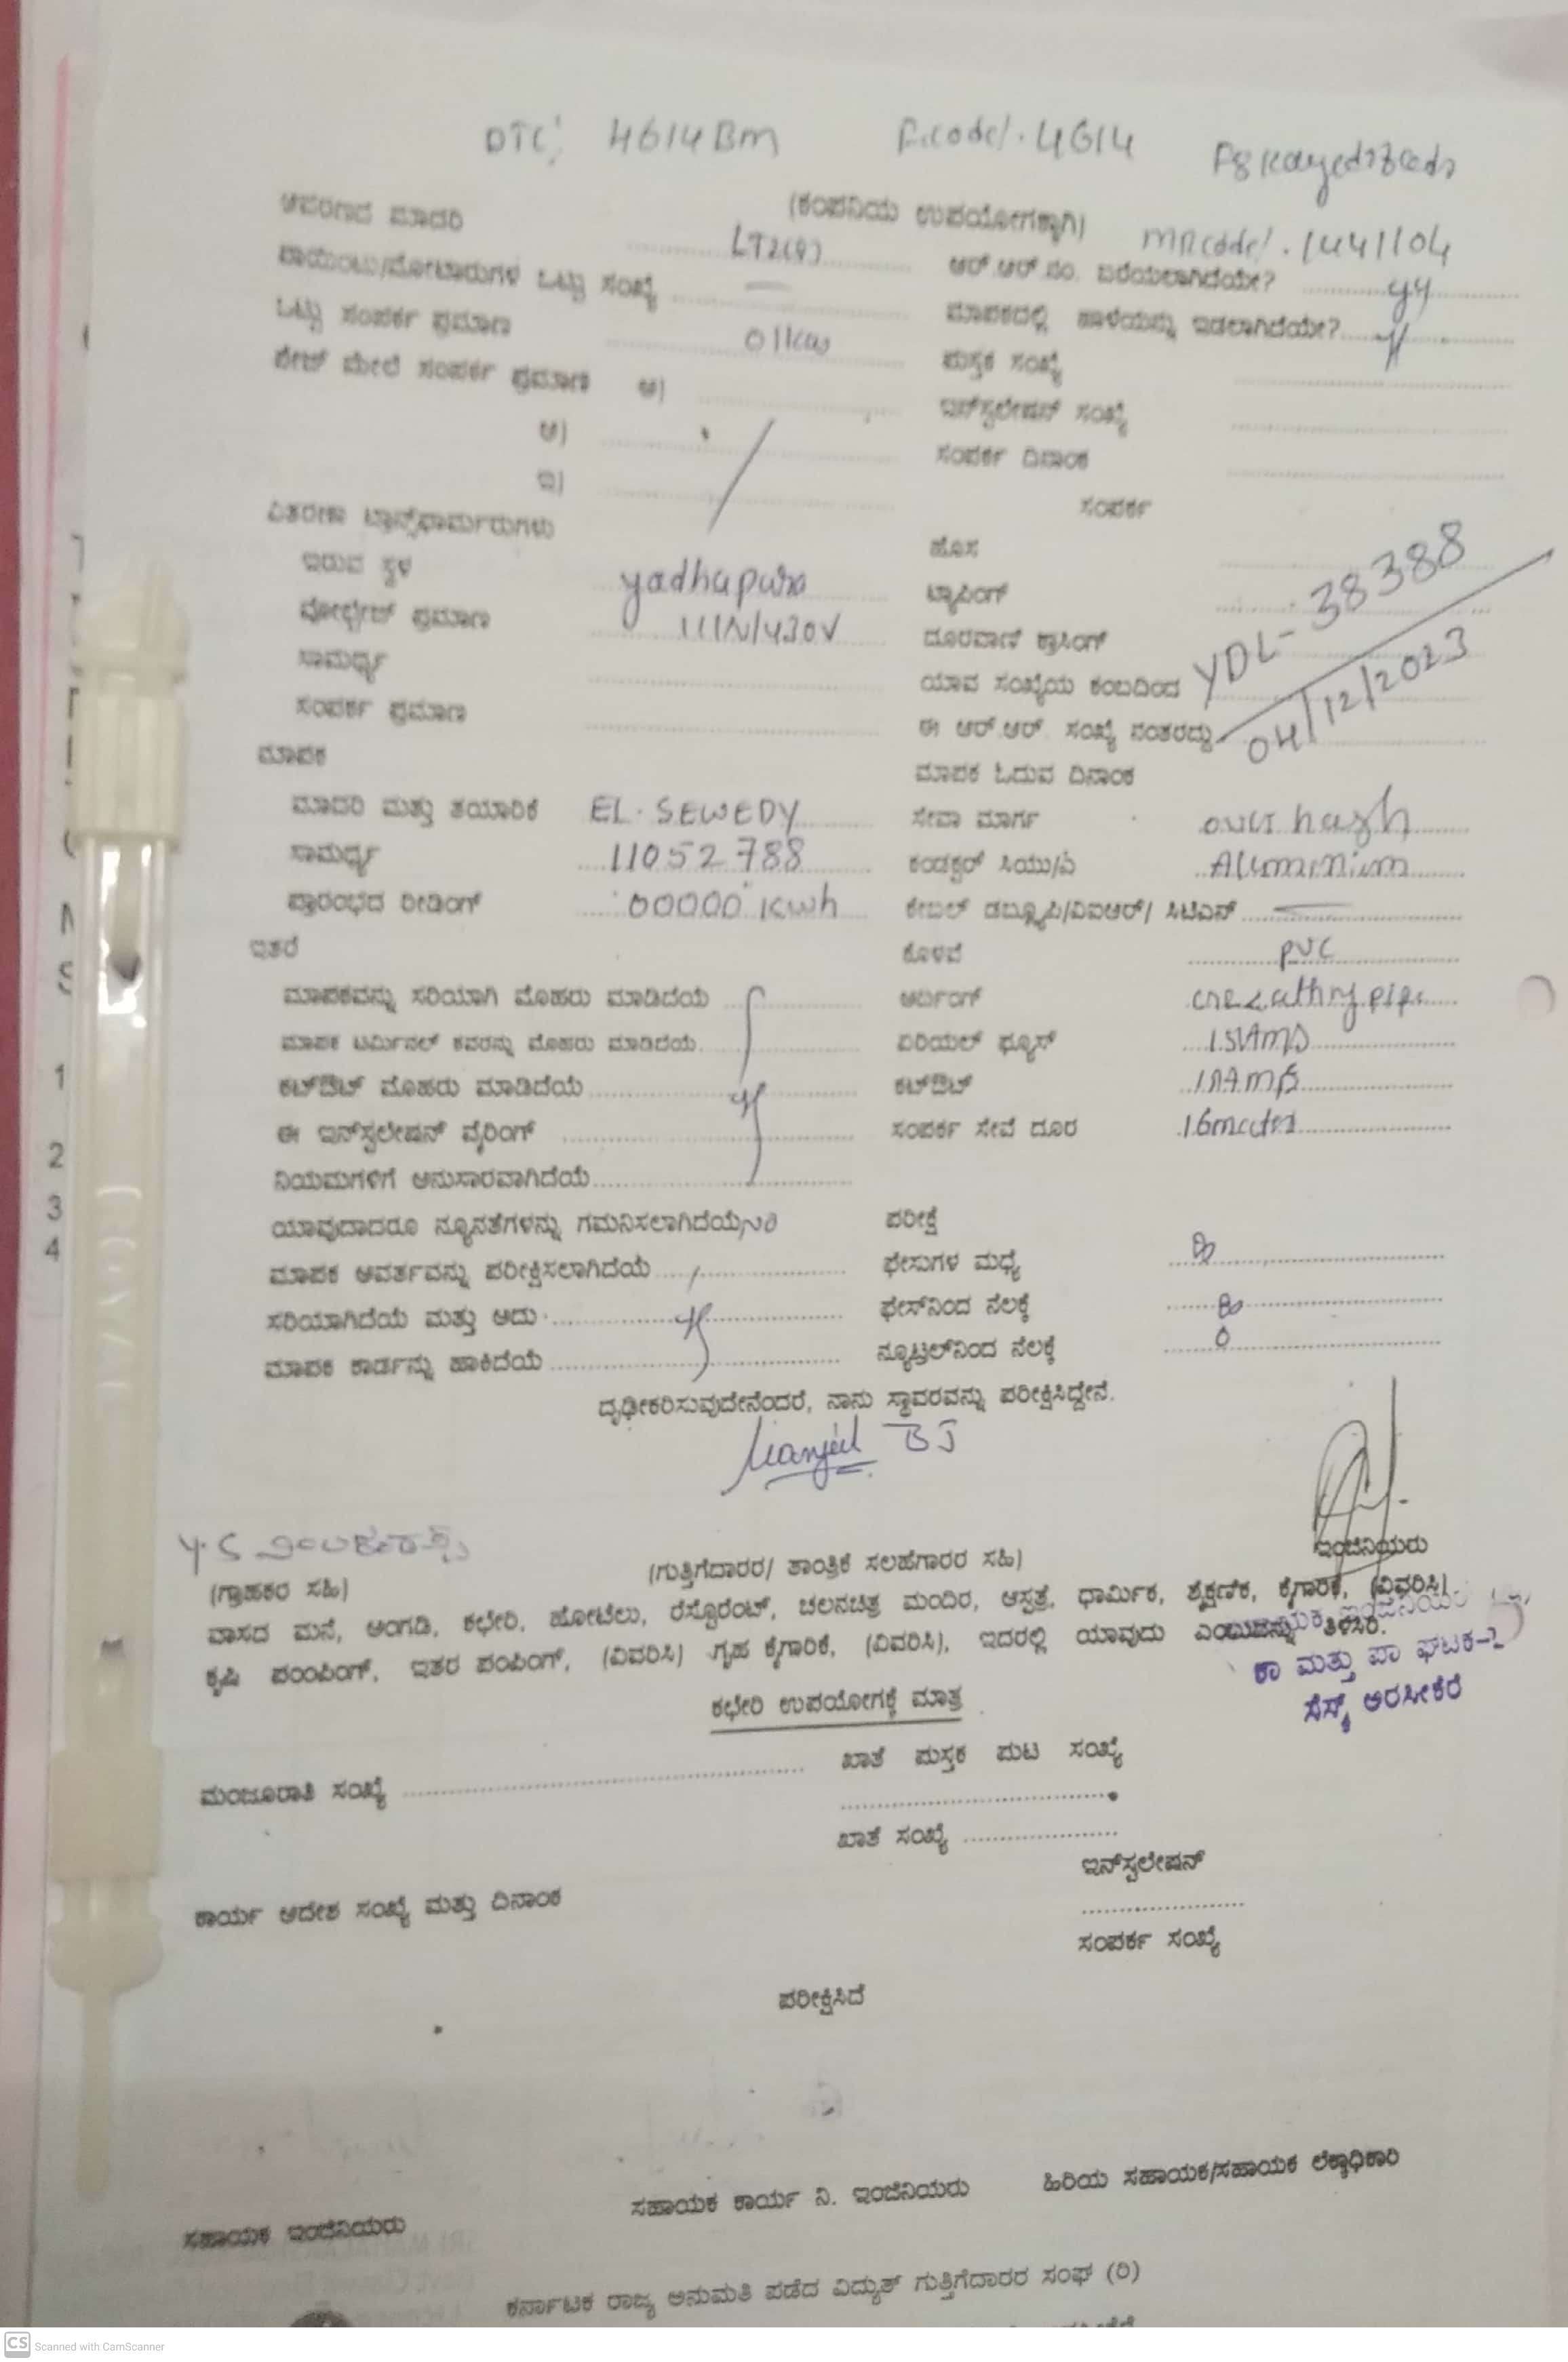 DTC: 4614BM
F.code/. 4614
(ಕಂಪನಿಯ ಉಪಯೋಗಕ್ಕಾಗಿ)
MR code/. 1441104
ಆವರಣದ ಮಾದರಿ LT2(a)
ಆರ್.ಆರ್.ನಂ. ಬರೆಯಲಾಗಿದೆಯೇ?
ಒಟ್ಟು ಸಂಖ್ಯೆ
ಮಾಪಕದಲ್ಲಿ ಹಾಳೆಯನ್ನು ಇಡಲಾಗಿದೆಯೇ?
ಒಟ್ಟು ಸಂಪರ್ಕ ಪ್ರಮಾಣ 01kw
ಪುಸ್ತಕ ಸಂಖ್ಯೆ
ಫೇಜ್ ಮೇಲೆ ಸಂಪರ್ಕ ಪ್ರಮಾಣ ಅ)
ಇನ್‌ಸ್ಟಲೇಷನ್ ಸಂಖ್ಯೆ
ಆ)
ಸಂಪರ್ಕ ದಿನಾಂಕ
ಇ)
ಸಂಪರ್ಕ
ವಿತರಣಾ ಟ್ರಾನ್ಸ್‌ಫಾರ್ಮರುಗಳು
ಹೊಸ
ಇರುವ ಸ್ಥಳ yadhapura
ಟ್ಯಾಪಿಂಗ್
YDL-38388
ವೋಲ್ಟೇಜ್ ಪ್ರಮಾಣ
ದೂರವಾಣಿ ಕ್ರಾಸಿಂಗ್
ಸಾಮರ್ಥ್ಯ
ಯಾವ ಸಂಖ್ಯೆಯ ಕಂಬದಿಂದ
ಸಂಪರ್ಕ ಪ್ರಮಾಣ
ಈ ಆರ್.ಆರ್. ಸಂಖ್ಯೆ ನಂತರದ್ದು
04/12/2023
ಮಾಪಕ
ಮಾಪಕ ಓದುವ ದಿನಾಂಕ
ಮಾದರಿ ಮತ್ತು ತಯಾರಿಕೆ EL.SEWEDY
ಸೇವಾ ಮಾರ್ಗ
ಸಾಮರ್ಥ್ಯ 11052788
ಕಂಡಕ್ಟರ್ ಸಿಯು/ಎ Aluminium
ಪ್ರಾರಂಭದ ರೀಡಿಂಗ್ 00000 kwh
ಕೇಬಲ್ ಡಬ್ಲ್ಯೂಪಿ/ವಿಐಆರ್/ ಸಿಟಿಎಸ್
ಇತರೆ
ಕೊಳವೆ PVC
ಮಾಪಕವನ್ನು ಸರಿಯಾಗಿ ಮೊಹರು ಮಾಡಿದೆಯೆ
ಅರ್ಥಿಂಗ್
ಮಾಪಕ ಟರ್ಮಿನಲ್ ಕವರನ್ನು ಮೊಹರು ಮಾಡಿದೆಯೆ
ಏರಿಯಲ್ ಫ್ಯೂಸ್
ಕಟ್‌ಔಟ್ ಮೊಹರು ಮಾಡಿದೆಯೆ
ಕಟ್‌ಔಟ್
ಈ ಇನ್‌ಸ್ಟಲೇಷನ್ ವೈರಿಂಗ್
ಸಂಪರ್ಕ ಸೇವೆ ದೂರ
ನಿಯಮಗಳಿಗೆ ಅನುಸಾರವಾಗಿದೆಯೆ
ಯಾವುದಾದರೂ ನ್ಯೂನತೆಗಳನ್ನು ಗಮನಿಸಲಾಗಿದೆಯೆ
ಪರೀಕ್ಷೆ
ಮಾಪಕ ಆವರ್ತವನ್ನು ಪರೀಕ್ಷಿಸಲಾಗಿದೆಯೆ
ಫೇಸುಗಳ ಮಧ್ಯೆ
ಸರಿಯಾಗಿದೆಯೆ ಮತ್ತು ಅದು
ಫೇಸ್‌ನಿಂದ ನೆಲಕ್ಕೆ
ಮಾಪಕ ಕಾರ್ಡನ್ನು ಹಾಕಿದೆಯೆ
ನ್ಯೂಟ್ರಲ್‌ನಿಂದ ನೆಲಕ್ಕೆ
ದೃಢೀಕರಿಸುವುದೇನೆಂದರೆ, ನಾನು ಸ್ಥಾವರವನ್ನು ಪರೀಕ್ಷಿಸಿದ್ದೇನೆ.
ಇಂಜಿನಿಯರು
(ಗ್ರಾಹಕರ ಸಹಿ)
(ಗುತ್ತಿಗೆದಾರರ/ ತಾಂತ್ರಿಕ ಸಲಹೆಗಾರರ ಸಹಿ)
ವಾಸದ ಮನೆ, ಅಂಗಡಿ, ಕಛೇರಿ, ಹೋಟೆಲು, ರೆಸ್ಟೊರೆಂಟ್, ಚಲನಚಿತ್ರ ಮಂದಿರ, ಆಸ್ಪತ್ರೆ, ಧಾರ್ಮಿಕ, ಶೈಕ್ಷಣಿಕ, ಕೈಗಾರಿಕೆ, (ವಿವರಿಸಿ)
ಕೃಷಿ ಪಂಪಿಂಗ್, ಇತರ ಪಂಪಿಂಗ್, (ವಿವರಿಸಿ) ಗೃಹ ಕೈಗಾರಿಕೆ, (ವಿವರಿಸಿ), ಇದರಲ್ಲಿ ಯಾವುದು ಎಂಬುದನ್ನು ತಿಳಿಸಿರಿ.
ಕಾ ಮತ್ತು ಪಾ ಘಟಕ-2
ಸೆಸ್ಕ್ ಅರಸೀಕೆರೆ
ಕಛೇರಿ ಉಪಯೋಗಕ್ಕೆ ಮಾತ್ರ
ಮಂಜೂರಾತಿ ಸಂಖ್ಯೆ
ಖಾತೆ ಪುಸ್ತಕ ಪುಟ ಸಂಖ್ಯೆ
ಖಾತೆ ಸಂಖ್ಯೆ
ಇನ್‌ಸ್ಟಲೇಷನ್
ಕಾರ್ಯ ಆದೇಶ ಸಂಖ್ಯೆ ಮತ್ತು ದಿನಾಂಕ
ಸಂಪರ್ಕ ಸಂಖ್ಯೆ
ಪರೀಕ್ಷಿಸಿದೆ
ಸಹಾಯಕ ಇಂಜಿನಿಯರು
ಸಹಾಯಕ ಕಾರ್ಯ ನಿ. ಇಂಜಿನಿಯರು
ಹಿರಿಯ ಸಹಾಯಕ/ಸಹಾಯಕ ಲೆಕ್ಕಾಧಿಕಾರಿ
ಕರ್ನಾಟಕ ರಾಜ್ಯ ಅನುಮತಿ ಪಡೆದ ವಿದ್ಯುತ್ ಗುತ್ತಿಗೆದಾರರ ಸಂಘ (ರಿ)
CS Scanned with CamScanner